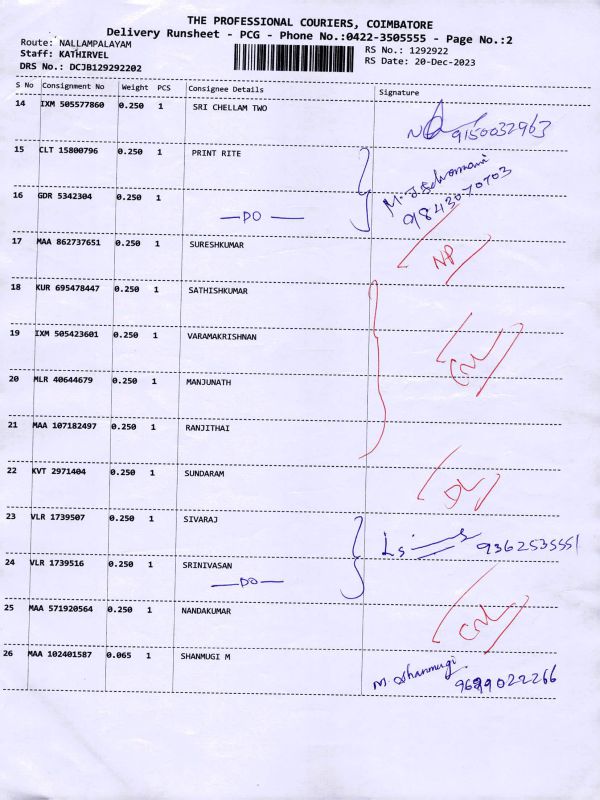 THE PROFESSIONAL COURIERS, COIMBATORE
Delivery Runsheet - PCG - Phone No.:0422-3505555 - Page No.:2
Route: NALLAMPALAYAM RS No.: 1292922
Staff: KATHIRVEL RS Date: 20-Dec-2023
DRS No.: DCJB129292202
S No Consignment No Weight PCS Consignee Details Signature
14 IXM 505577860 0.250 1 SRI CHELLAM TWO
9150032963
15 CLT 15800796 0.250 1 PRINT RITE
16 GDR 5342304 0.250 1
—DO— 9843070703
17 MAA 862737651 0.250 1 SURESHKUMAR NP
18 KUR 695478447 0.250 1 SATHISHKUMAR
19 IXM 505423601 0.250 1 VARAMAKRISHNAN
20 MLR 40644679 0.250 1 MANJUNATH
21 MAA 107182497 0.250 1 RANJITHAI
22 KVT 2971404 0.250 1 SUNDARAM DL
23 VLR 1739507 0.250 1 SIVARAJ
9362535551
24 VLR 1739516 0.250 1 SRINIVASAN
—DO—
25 MAA 571920564 0.250 1 NANDAKUMAR
26 MAA 102401587 0.065 1 SHANMUGI M M. Shanmugi